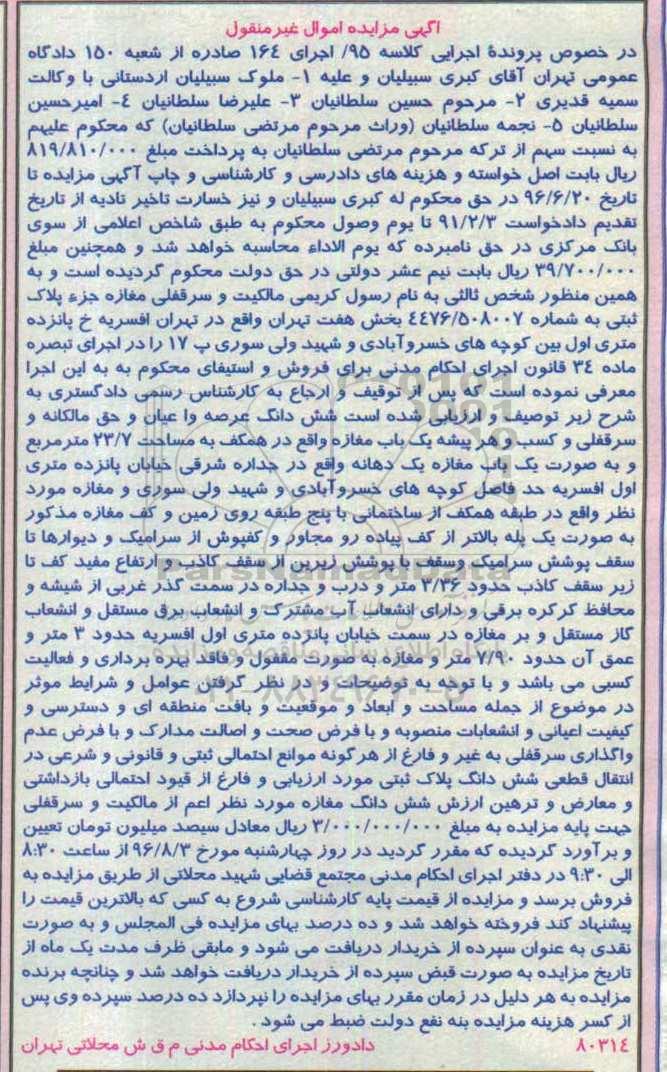 اگهی مزایده اموال غیرمنقول
در خصوص پروندهٔ اجرایی کلاسه ۹۵/ اجرای ۱۶۴ صادره از شعبه ۱۵۰ دادگاه
عمومی تهران آقای کبری سبیلیان و علیه ۱- ملوک سبیلیان اردستانی با وکالت
سمیه قدیری ۲- مرحوم حسین سلطانیان ۳- علیرضا سلطانیان ٤- امیرحسین
سلطانیان ۵- نجمه سلطانیان (وراث مرحوم مرتضی سلطانیان) که محکوم علیهم
به نسبت سهم از ترکه مرحوم مرتضی سلطانیان به پرداخت مبلغ ۸۱۹/۸۱۰/۰۰۰
ریال بابت اصل خواسته و هزینه های دادرسی و کارشناسی و چاپ آگهی مزایده تا
تاریخ ۹۶/۶/۲۰ در حق محکوم له کبری سبیلیان و نیز خسارت تاخیر تادیه از تاریخ
تقدیم دادخواست ۹۱/۲/۳ تا یوم وصول محکوم به طبق شاخص اعلامی از سوی
بانک مرکزی در حق نامبرده که یوم الاداء محاسبه خواهد شد و همچنین مبلغ
۳۹/۷۰۰/۰۰۰ ریال بابت نیم عشر دولتی در حق دولت محکوم گردیده است و به
همین منظور شخص ثالثی به نام رسول کریمی مالکیت و سرقفلی مغازه جزء پلاک
ثبتی به شماره ٤٤۷۶/۵۰۸۰۰۷ بخش هفت تهران واقع در تهران افسریه خ پانزده
متری اول بین کوچه های خسروآبادی و شهید ولی سوری پ ۱۷ را در اجرای تبصره
ماده ۳٤ قانون اجرای احکام مدنی برای فروش و استیفای محکوم به به این اجرا
معرفی نموده است که پس از توقیف و ارجاع به کارشناس رسمی دادگستری به
شرح زیر توصیف و ارزیابی شده است شش دانگ عرصه وا عیان و حق مالکانه و
سرقفلی و کسب و هر پیشه یک باب مغازه واقع در همکف به مساحت ۲۳/۷ مترمربع
و به صورت یک باب مغازه یک دهانه واقع در جداره شرقی خیابان پانزده متری
اول افسریه حد فاصل کوچه های خسروآبادی و شهید ولی سوری و مغازه مورد
نظر واقع در طبقه همکف از ساختمانی با پنج طبقه روی زمین و کف مغازه مذکور
به صورت یک پله بالاتر از کف پیاده رو مجاور و کفپوش از سرامیک و دیوارها تا
سقف پوشش سرامیک وسقف با پوشش زیرین از سقف کاذب و ارتفاع مفید کف تا
زیر سقف کاذب حدود ۲/۳۶ متر و درب و جداره در سمت گذر غربی از شیشه و
محافظ کرکره برقی و دارای انشعاب آب مشترک و انشعاب برق مستقل و انشعاب
گاز مستقل و بر مغازه در سمت خیابان پانزده متری اول افسریه حدود ۳ متر و
عمق آن حدود ۷/۹۰ متر و مغازه به صورت مقفول و فاقد بهره برداری و فعالیت
کسبی می باشد و با توجه به توضیحات و در نظر گرفتن عوامل و شرایط موثر
در موضوع از جمله مساحت و ابعاد و موقعیت و بافت منطقه ای و دسترسی و
کیفیت اعیانی و انشعابات منصوبه و با فرض صحت و اصالت مدارک و با فرض عدم
واگذاری سرقفلی به غیر و فارغ از هرگونه موانع احتمالی ثبتی و قانونی و شرعی در
انتقال قطعی شش دانگ پلاک ثبتی مورد ارزیابی و فارغ از قیود احتمالی بازداشتی
و معارض و ترهین ارزش شش دانگ مغازه مورد نظر اعم از مالکیت و سرقفلی
جهت پایه مزایده به مبلغ ۳/۰۰۰/۰۰۰/۰۰۰ ریال معادل سیصد میلیون تومان تعیین
و برآورد گردیده که مقرر گردید در روز چهارشنبه مورخ ۹۶/۸/۳ از ساعت ۸:۳۰
الی ۹:۳۰ در دفتر اجرای احکام مدنی مجتمع قضایی شهید محلاتی از طریق مزایده به
فروش برسد و مزایده از قیمت پایه کارشناسی شروع به کسی که بالاترین قیمت را
پیشنهاد کند فروخته خواهد شد و ده درصد بهای مزایده فی المجلس و به صورت
نقدی به عنوان سپرده از خریدار دریافت می شود و مابقی ظرف مدت یک ماه از
تاریخ مزایده به صورت قبض سپرده از خریدار دریافت خواهد شد و چنانچه برنده
مزایده به هر دلیل در زمان مقرر بهای مزایده را نپردازد ده درصد سپرده وی پس
از کسر هزینه مزایده بنه نفع دولت ضبط می شود .
۸۰۳۱٤ دادورز اجرای احکام مدنی م ق ش محلاتی تهران
ParsNamadData
۰۲۱-۸۸۳۴۹۶۷۰-۵